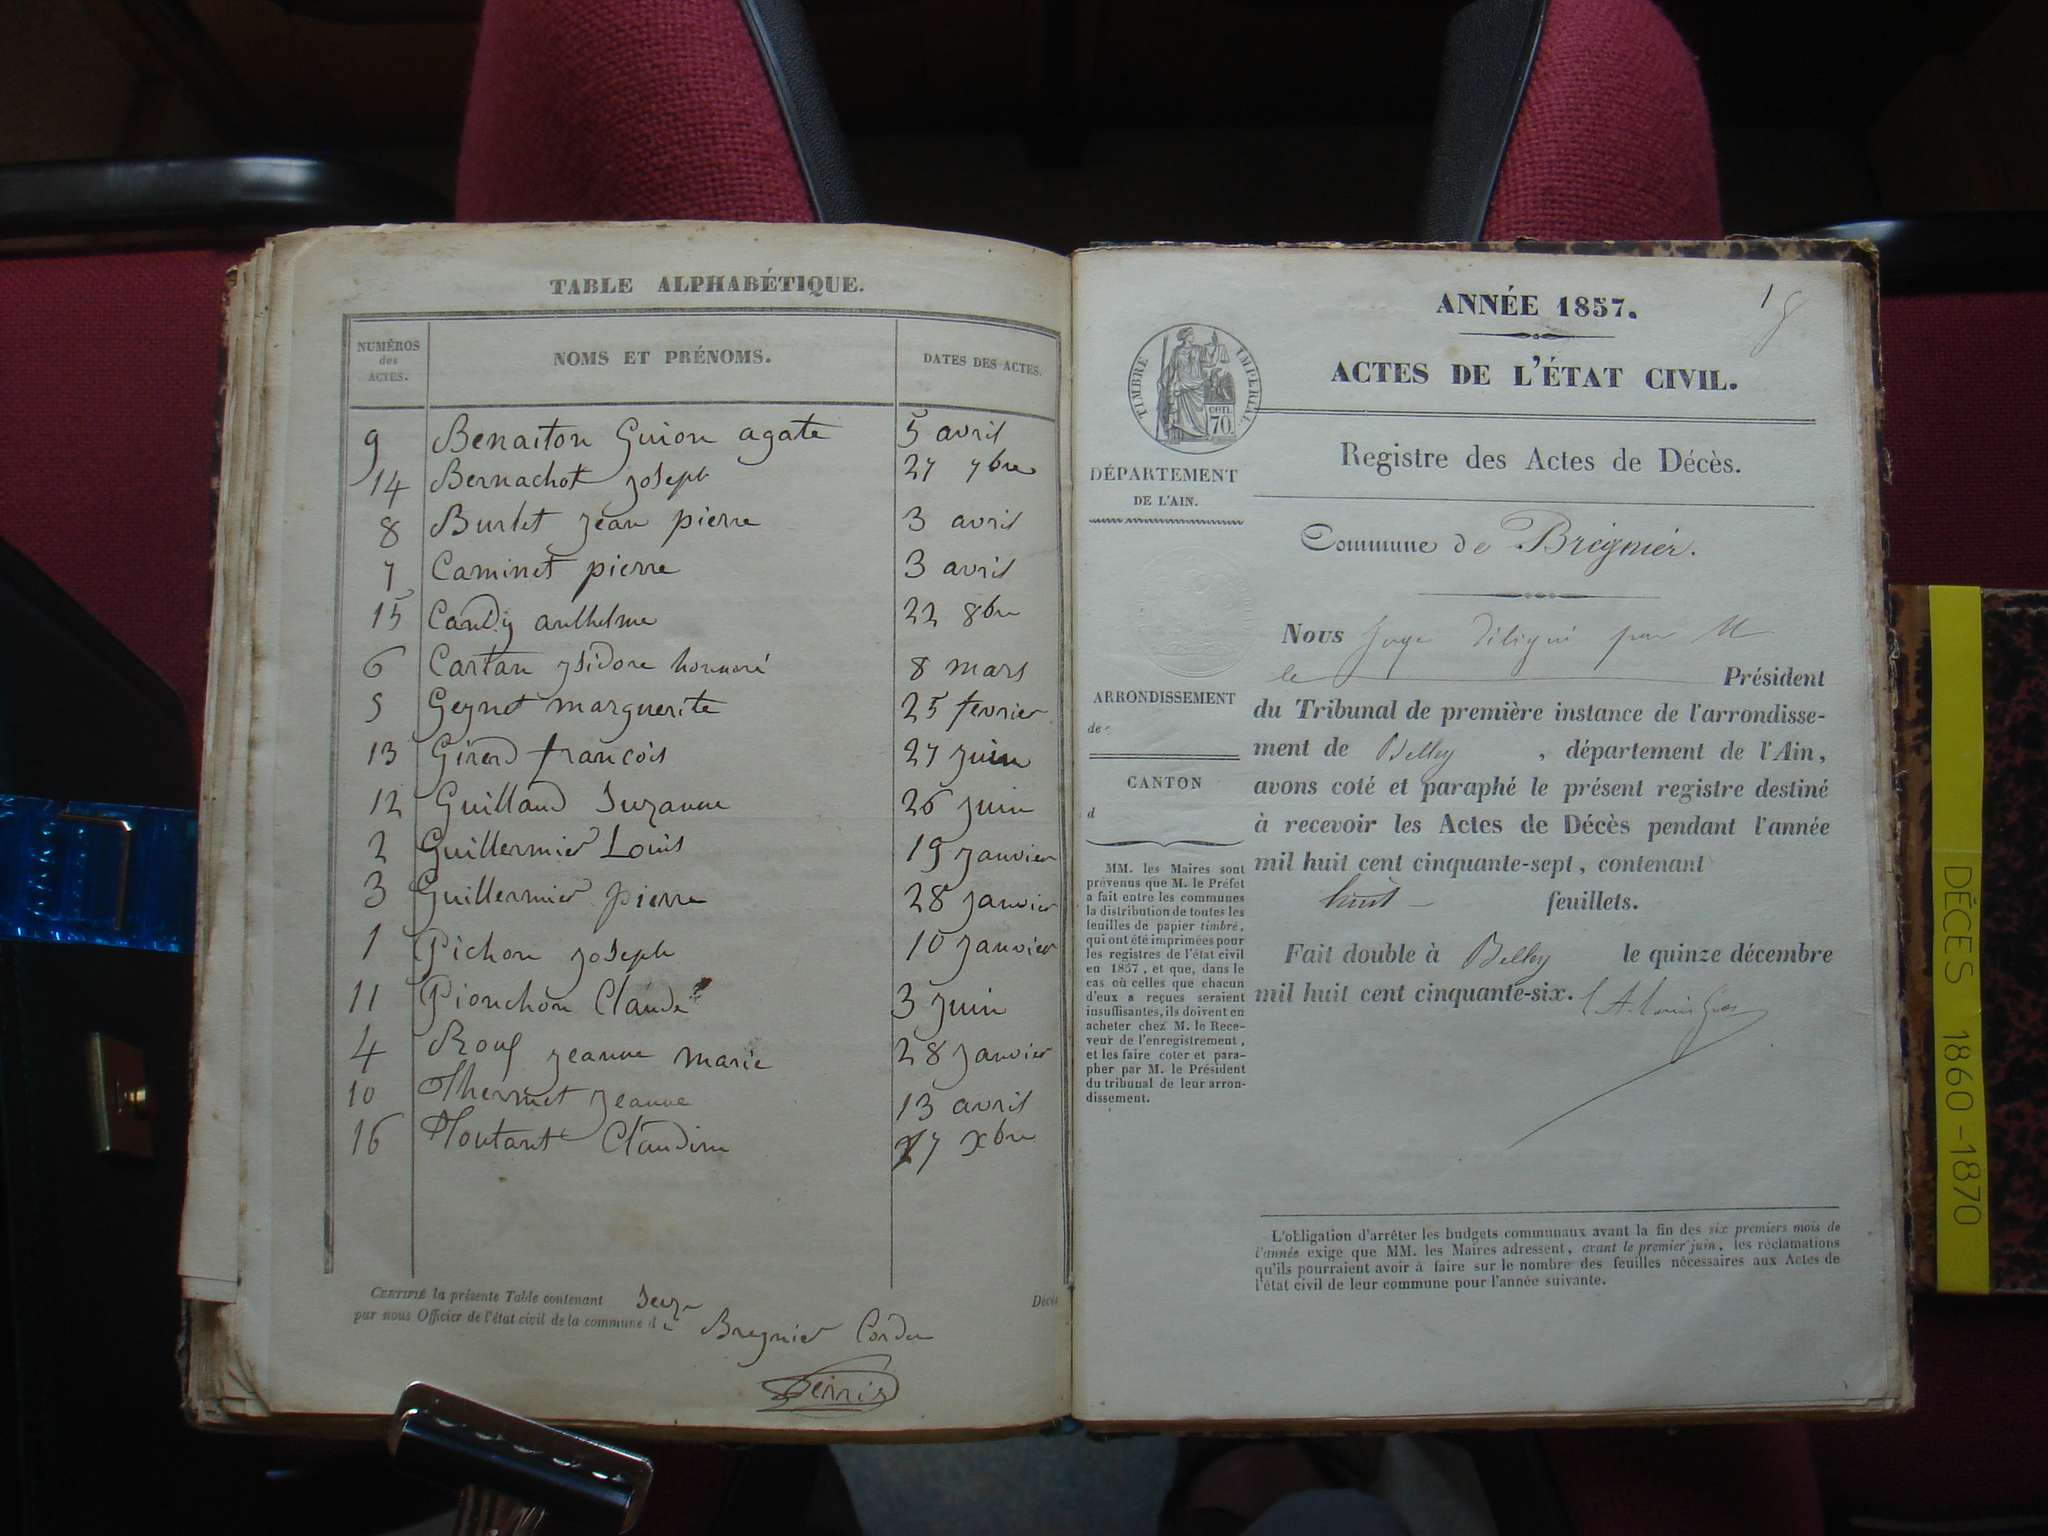 TABLE ALPHABÉTIQUE.
NUMÉROS des ACTES. NOMS ET PRÉNOMS. DATES DES ACTES.
9 Benaiton Guion agate 5 avril
14 Bernachot joseph 27 7bre
8 Burlet jean pierre 3 avril
7 Caminet pierre 3 avril
15 Candy anthelme 22 8bre
6 Cartan ysidore honnoré 8 mars
5 Geynet marguerite 25 fevrier
13 Girerd françois 27 juin
12 Guilland Suzanne 26 juin
2 Guillermier Louis 19 janvier
3 Guillermier pierre 28 janvier
1 Pichon joseph 10 janvier
11 Pionchon Claude 3 juin
4 Roux jeanne marie 28 janvier
10 Thermet jeanne 13 avril
16 Toutant Claudine 17 xbre
CERTIFIÉ la présente Table contenant Seize Décès
par nous Officier de l'état civil de la commune de Bregnier Cordon
ANNÉE 1857.
1
ACTES DE L'ÉTAT CIVIL.
TIMBRE IMPERIAL
70 cen.
Registre des Actes de Décès.
DÉPARTEMENT
DE L'AIN.
Commune de Bregnier.
Nous Juge délégué par M
le Président
du Tribunal de première instance de l'arrondisse-
ment de Belley , département de l'Ain,
avons coté et paraphé le présent registre destiné
à recevoir les Actes de Décès pendant l'année
mil huit cent cinquante-sept, contenant
huit feuillets.
Fait double à Belley le quinze décembre
mil huit cent cinquante-six.
ARRONDISSEMENT
de
CANTON
d
MM. les Maires sont
prévenus que M. le Préfet
a fait entre les communes
la distribution de toutes les
feuilles de papier timbré,
qui ont été imprimées pour
les registres de l'état civil
en 1857, et que, dans le
cas où celles que chacun
d'eux a reçues seraient
insuffisantes, ils doivent en
acheter chez M. le Rece-
veur de l'enregistrement,
et les faire coter et para-
pher par M. le Président
du tribunal de leur arron-
dissement.
L'obligation d'arrêter les budgets communaux avant la fin des six premiers mois de
l'année exige que MM. les Maires adressent, avant le premier juin, les réclamations
qu'ils pourraient avoir à faire sur le nombre des feuilles nécessaires aux Actes de
l'état civil de leur commune pour l'année suivante.
DÉCES 1860-1870